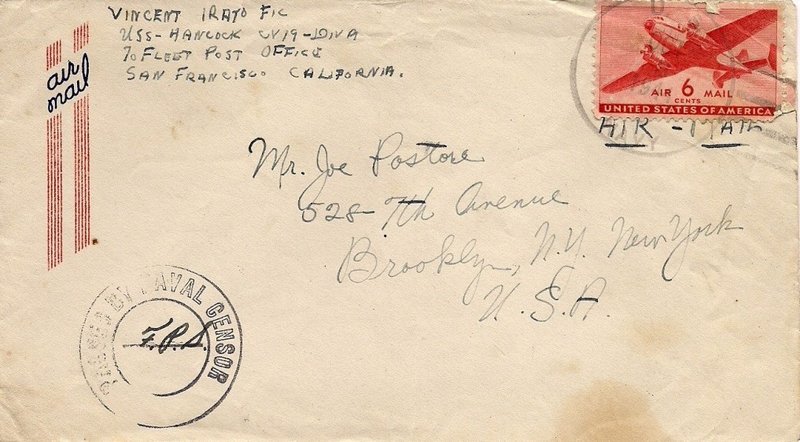 VINCENT IRATO F1C
USS-HANCOCK CV19-DIV A
℅ FLEET POST OFFICE
SAN FRANCISCO CALIFORNIA.
air
mail
AIR 6 MAIL
CENTS
UNITED STATES OF AMERICA
AIR-MAIL
Mr. Joe Pastore
528-7th Avenue
Brooklyn, N.Y. New York
U.S.A.
PASSED BY NAVAL CENSOR
F.P.S.
NAVY